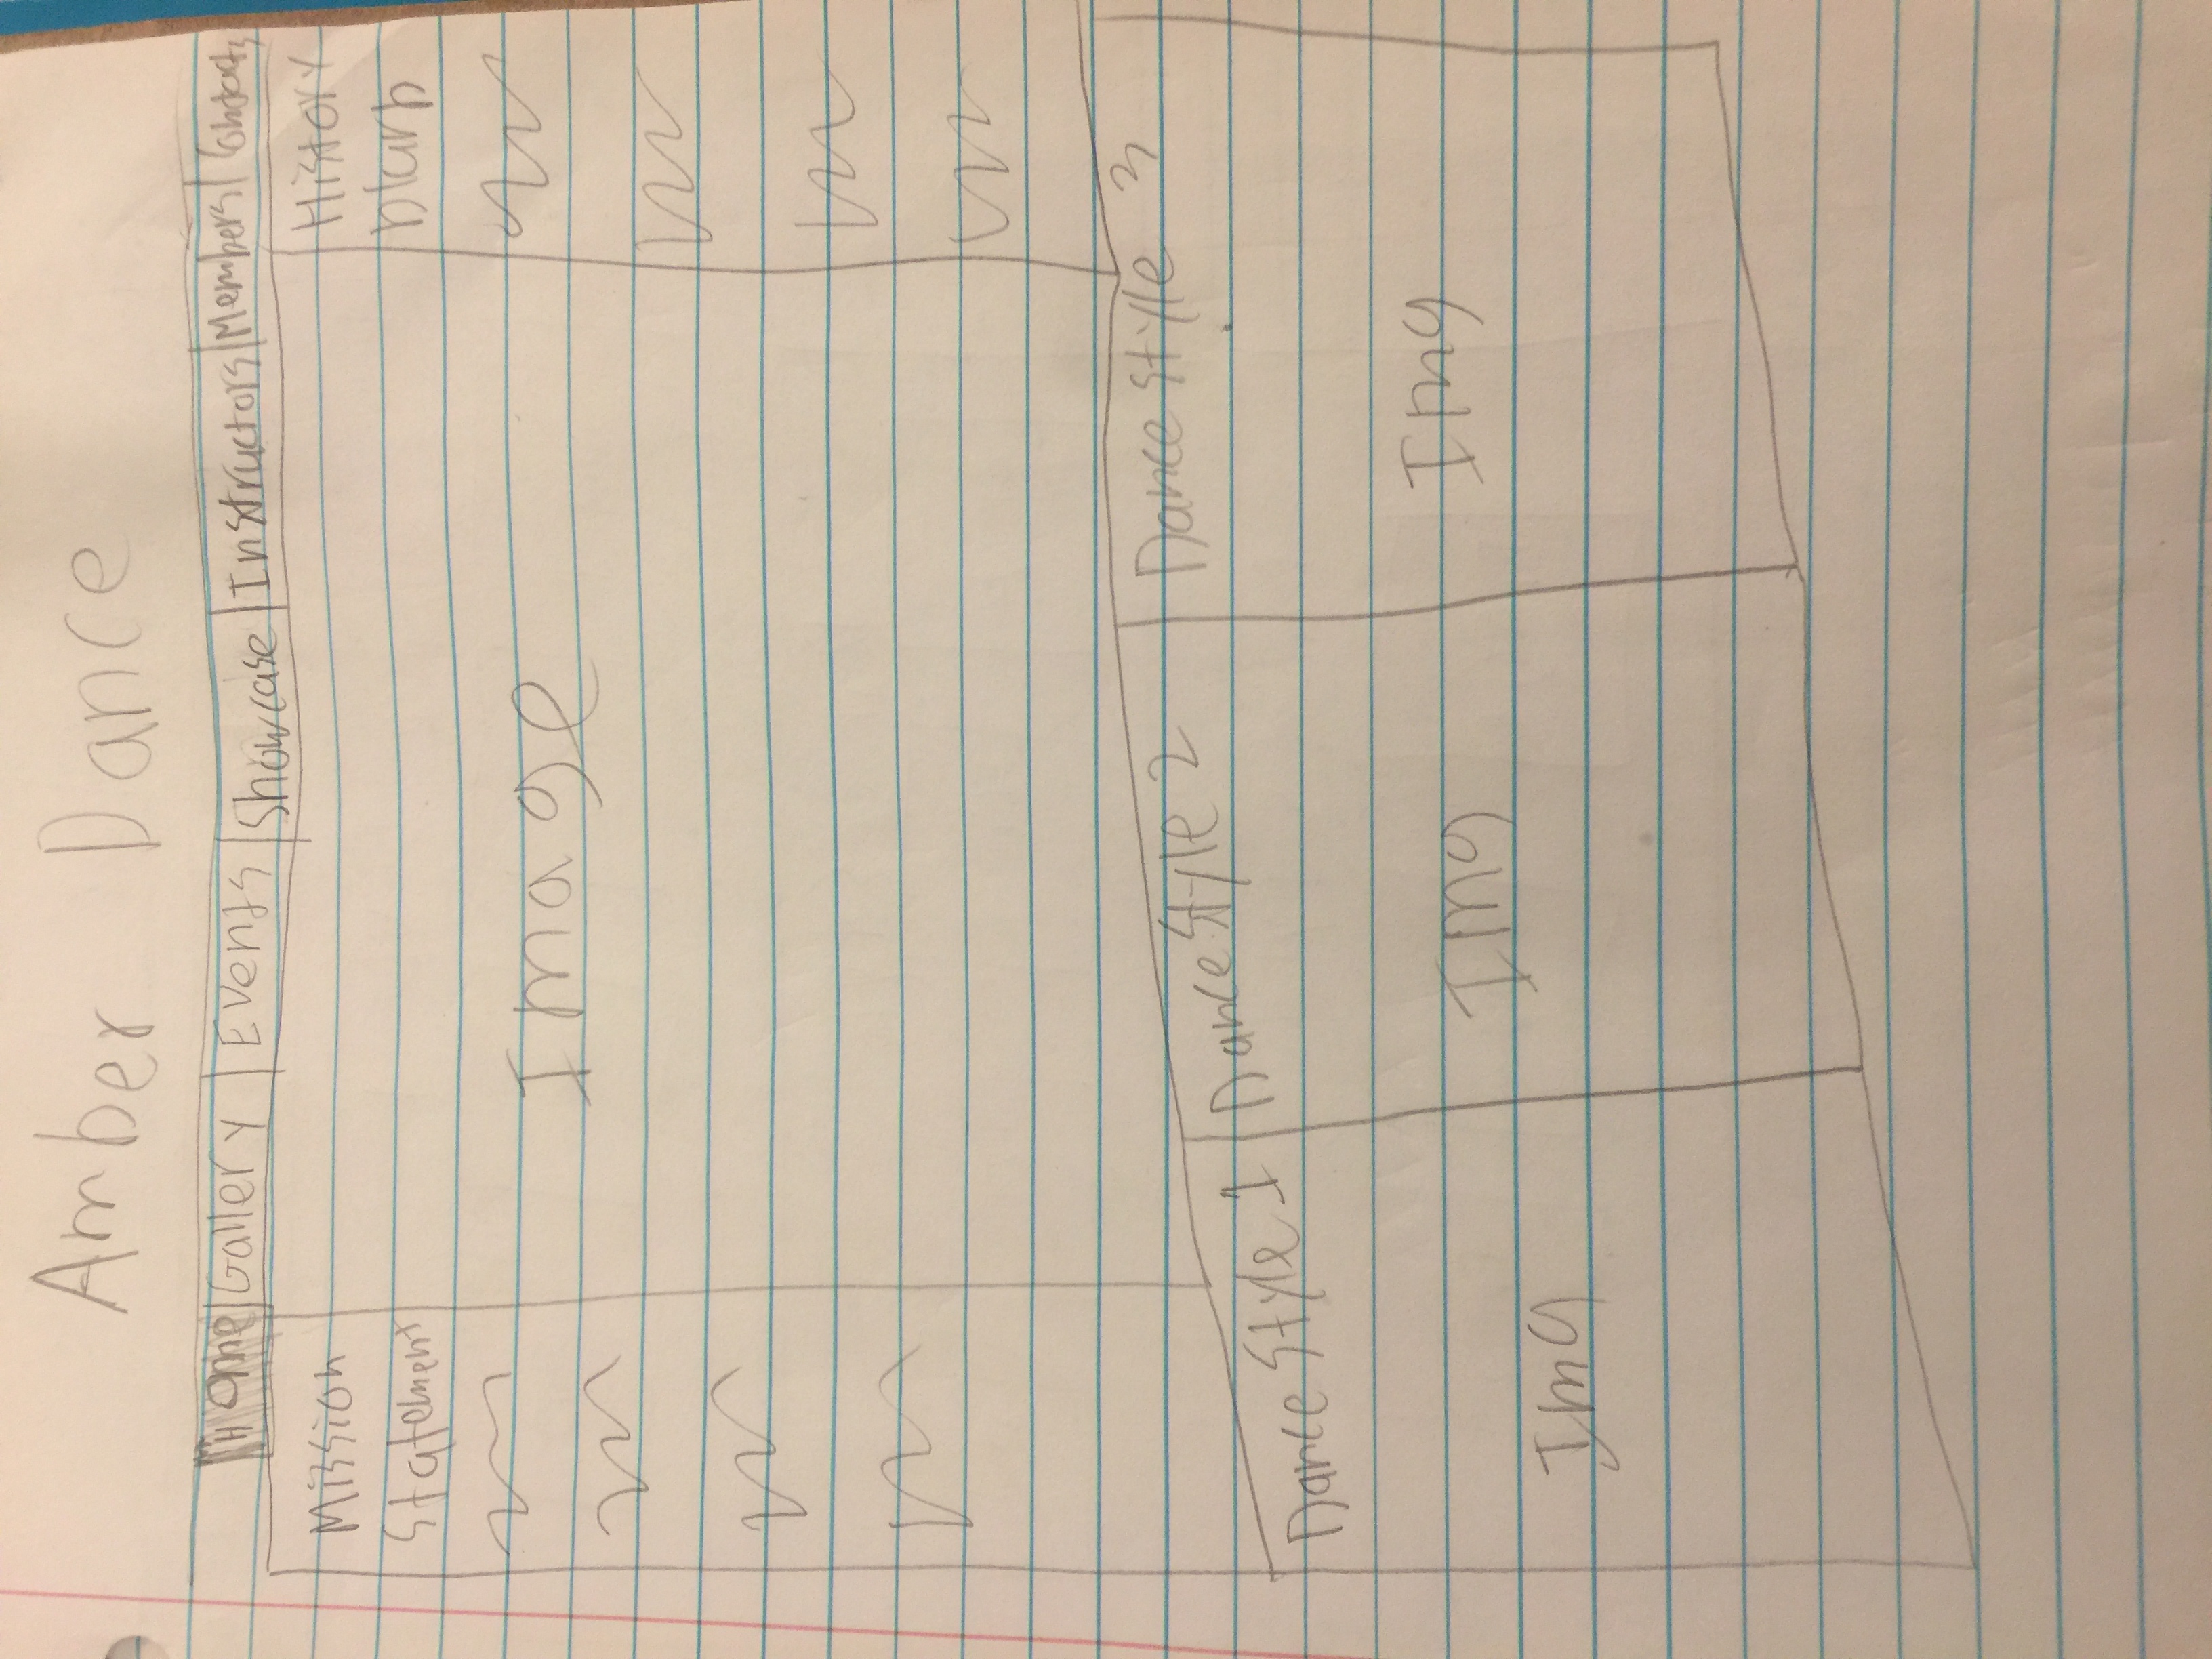 Amber Dance
Home Gallery Events Showcase Instructors Members Contacts
Mission
Statement
Image
History
blurb
Dance Style 1
Dance Style 2
Dance Style 3
Img
Img
Img